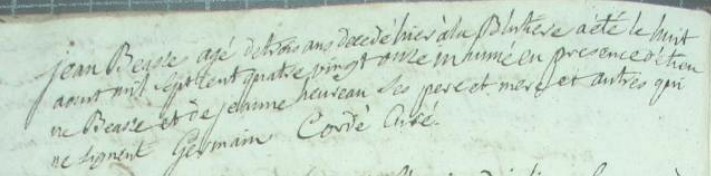 jean Beasse agé detrois ans decedé hier ala Bluttiere a été le huit
aoust mil sept cent quatre vingt onze inhumé en presence d'étien
ne Beasse et de jeanne heureau ses pere et mere et autres qui
ne signent Germain Cordé Curé.